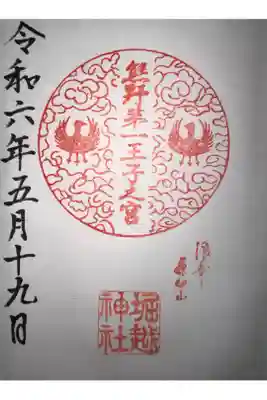 熊野第一王子之宮
堀越
神社
令和六年五月十九日